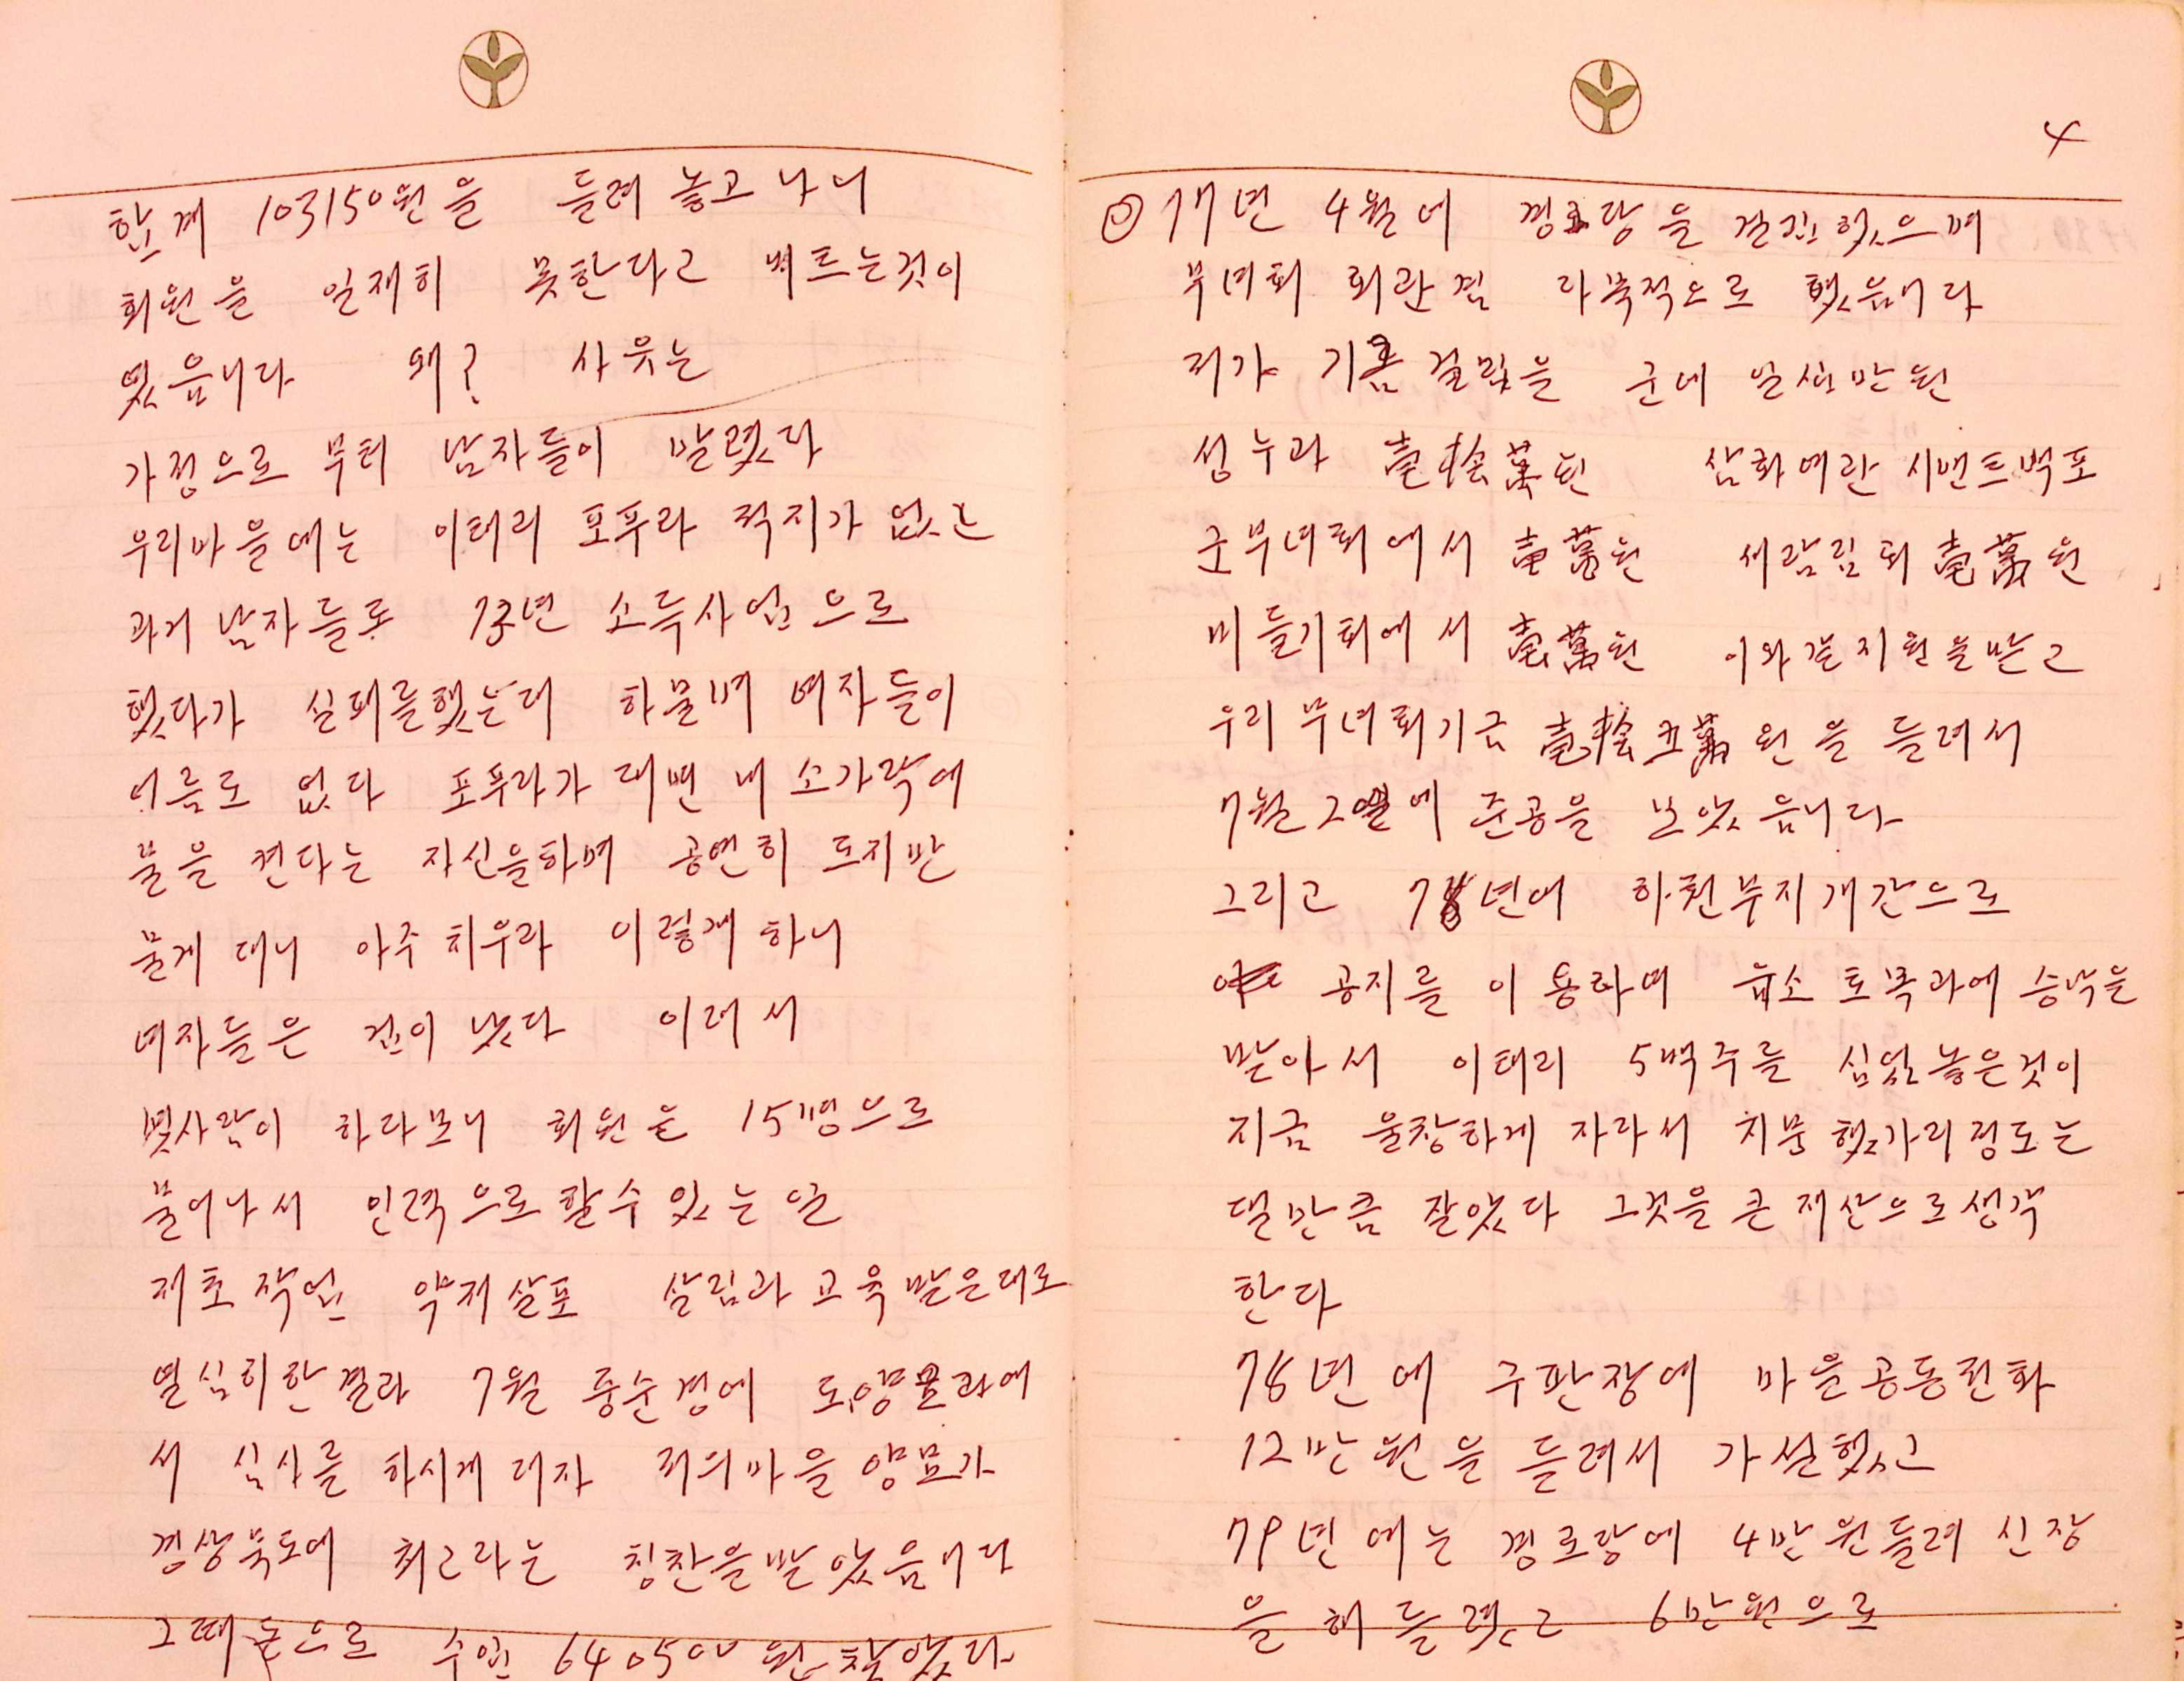 합계 103150원을 들려 놓고 나니
회원을 일재히 못한다고 버트는것이
였읍니다 왜? 사유는
가정으로 부터 남자들이 말렸다
우리마을에는 이태리 포푸라 적지가 없는
과거 남자들도 73년 소득사업으로
했다가 실패를했는데 하물며 여자들이
어름도 없다 포푸라가 대면 내 소가락에
불을 켠다는 자신을하며 공연히 도지만
물게 대니 아주 치우라 이렇게 하니
여자들은 겁이 났다 이래서
몇사람이 하다보니 회원은 15명으로
불어나서 인력으로 할수 있는 일
제초작업 약제살포 살림과 교육 받은대로
열심히한결과 7월 중순경에 도양묘과에
서 심사를 하시게 대자 저의마을 양묘가
경상북도에 최고라는 칭찬을받았읍니다
그때돈으로 수입 640500원 찾았다
4
◎ 77년 4월에 경로당을 건립했으며
부녀회 회관겸 다목적으로 했읍니다
저가 기름 걸립을 군에 일십만원
성누과 壹拾萬원 삼화여관 시맨트백포
군부녀회에서 壹萬원 새람림회 壹萬원
비들기회에서 壹萬원 이와같지원을받고
우리부녀회기금 壹拾五萬원을 들려서
7월 2일에 준공을 보았읍니다
그리고 78년에 하천부지개간으로
공지를 이용하여 읍소 토목과에 승낙을
받아서 이태리 5백주를 심었놓은것이
지금 울창하게 자라서 지붕 햇가리정도는
댈만큼 잘았다 그것을 큰 재산으로생각
한다
78년에 구판장에 마을공동전화
12만원을 들려서 가설했고
79년에는 경로당에 4만원들려 신장
을 해 들렸고 6만원으로